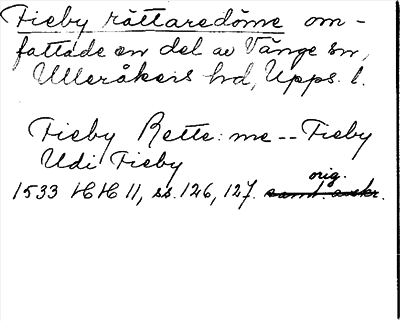 Fieby rättaredöme om-
fattade en del av Vänge sn,
Ulleråkers hd, Upps. l.
Fieby Rette: me -- Fieby
Udi Fieby
1533 HH 11, ss. 126, 127. samt. avskr. orig.